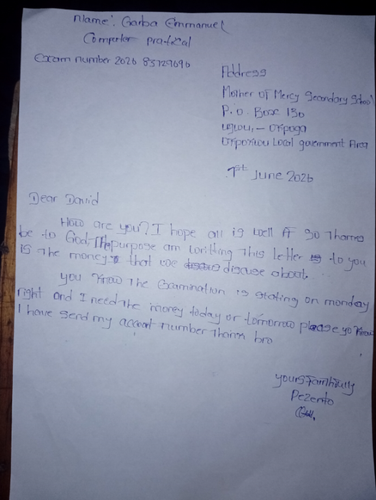 Name: Garba Emmanuel
Computer pratical
Exam number 2026
Address
Mother of Mercy Secondary School
P.o Box 150
Ugwu - Otpoga
Local government Area
1st June 2026
Dear David
How are you? I hope all is well if so thanks
be to God, The purpose am writing this letter to you
is the money that we discuse about.
you know the Examination is stating on monday
right and I need the money today or tomorrow please you know
I have send my account number thanks bro
yours faithfully
Pezento